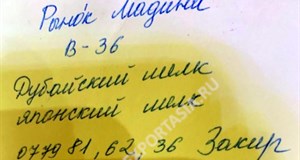 Рынок Мадина
В-36
Дубайский шелк
японский шелк
0779 81, 62, 36 Закир